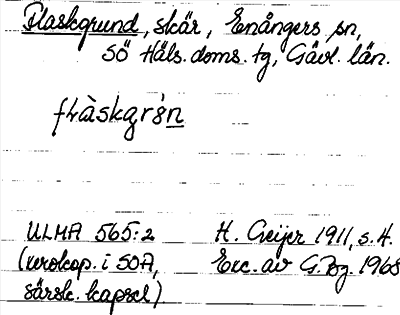 Plaskgrund, skär, Enångers sn,
SÖ Häls. doms. tg, Gävl. län.
ULMA 565:2 H. Geijer 1911, s. 4.
(xerokop. i SOA, Exc. av G. Bg. 1968
särsk. kapsel)